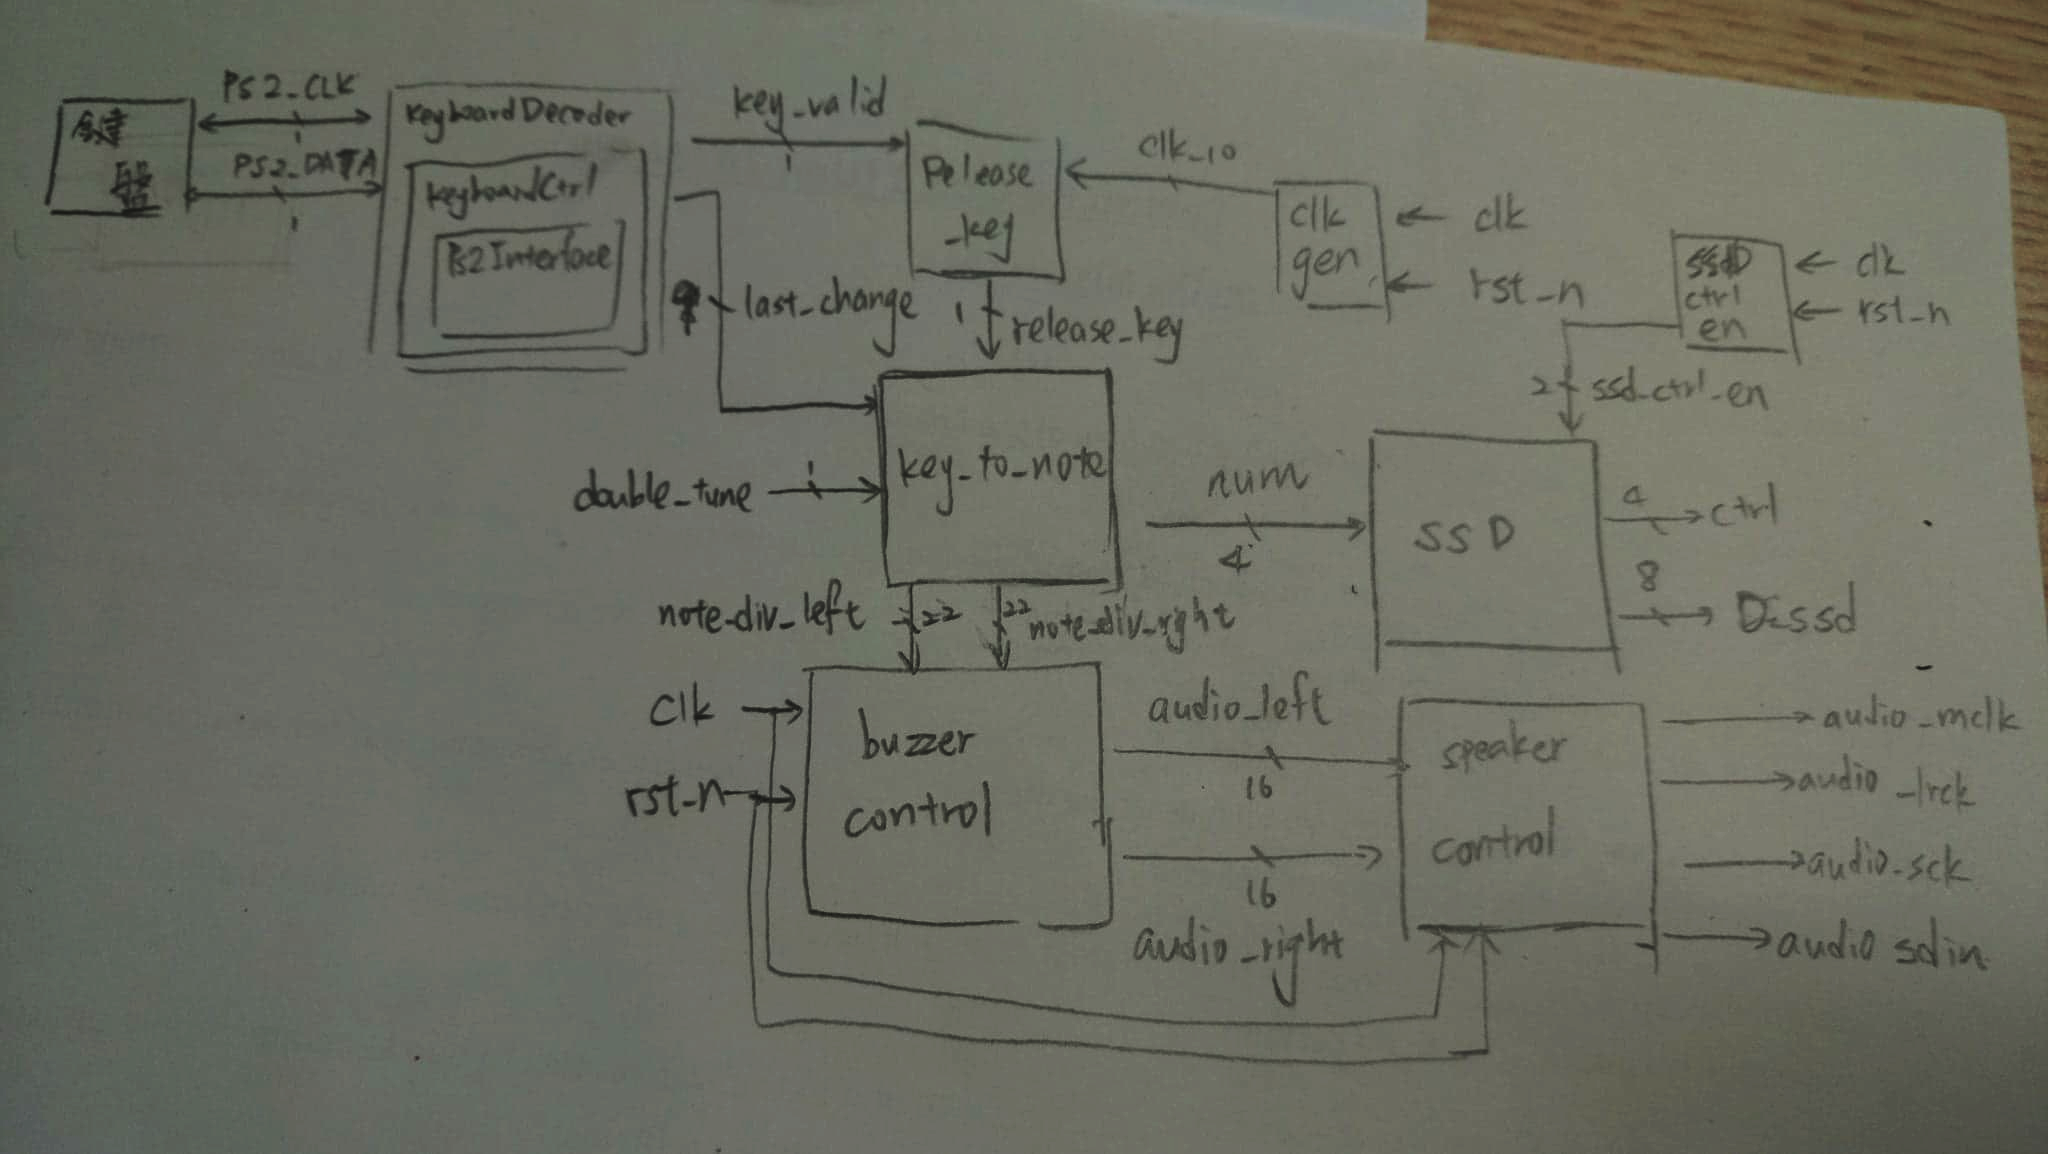 鍵
盤
PS2_CLK
1
PS2_DATA
1
KeyboardDecoder
KeyboardCtrl
PS2Interface
key_valid
1
Release
_key
clk_10
clk
gen
clk
rst_n
SSD
ctrl
en
clk
rst_n
last_change
1
release_key
2
ssd_ctrl_en
double_tune
1
key_to_note
num
4
SSD
4
ctrl
8
D_ssd
note_div_left
22
22
note_div_right
clk
rst_n
buzzer
control
audio_left
16
16
audio_right
speaker
control
audio_mclk
audio_lrck
audio_sck
audio sdin